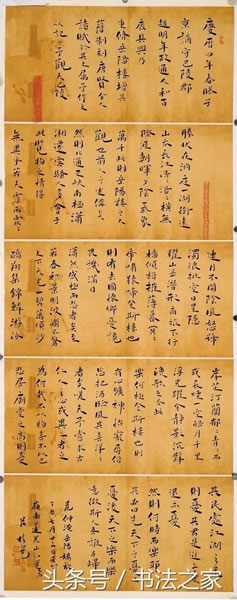 慶曆四年春滕子
京謫守巴陵郡
越明年政通人和百
廢具興乃
重修岳陽樓增其
舊制刻唐賢今人
詩賦於其上屬予作文
以記之予觀夫巴陵
勝狀在洞庭一湖銜遠
山吞長江浩浩湯湯橫無
際涯朝暉夕陰氣象
萬千此則岳陽樓之大
觀也前人之述備矣
然則北通巫峽南極瀟
湘遷客騷人多會于
此覽物之情得
無異乎若夫霪雨霏霏
連月不開陰風怒號
濁浪排空日星隱
曜山岳潛形商旅不行
檣傾楫摧薄暮冥冥
虎嘯猿啼登斯樓也
則有去國懷鄉憂讒
畏譏滿目
蕭然感極而悲者矣至
若春和景明波瀾不驚
上下天光一碧萬頃沙
鷗翔集錦鱗游泳
岸芷汀蘭郁郁青青而
或長煙一空皓月千里
浮光躍金靜影沉璧
漁歌互答此
樂何極登斯樓也則
有心曠神怡寵辱偕
忘把酒臨風其喜洋洋
者矣嗟夫予嘗求古
仁人之心或異二者之
為何哉不以物喜不以己
悲居廟堂之高則憂
其民處江湖之遠
則憂其君是進亦憂
退亦憂
然則何時而樂耶
其必曰先天下之憂而
憂後天下之樂而樂乎
噫微斯人吾誰與歸
范仲淹岳陽樓記
头条号/书法之家